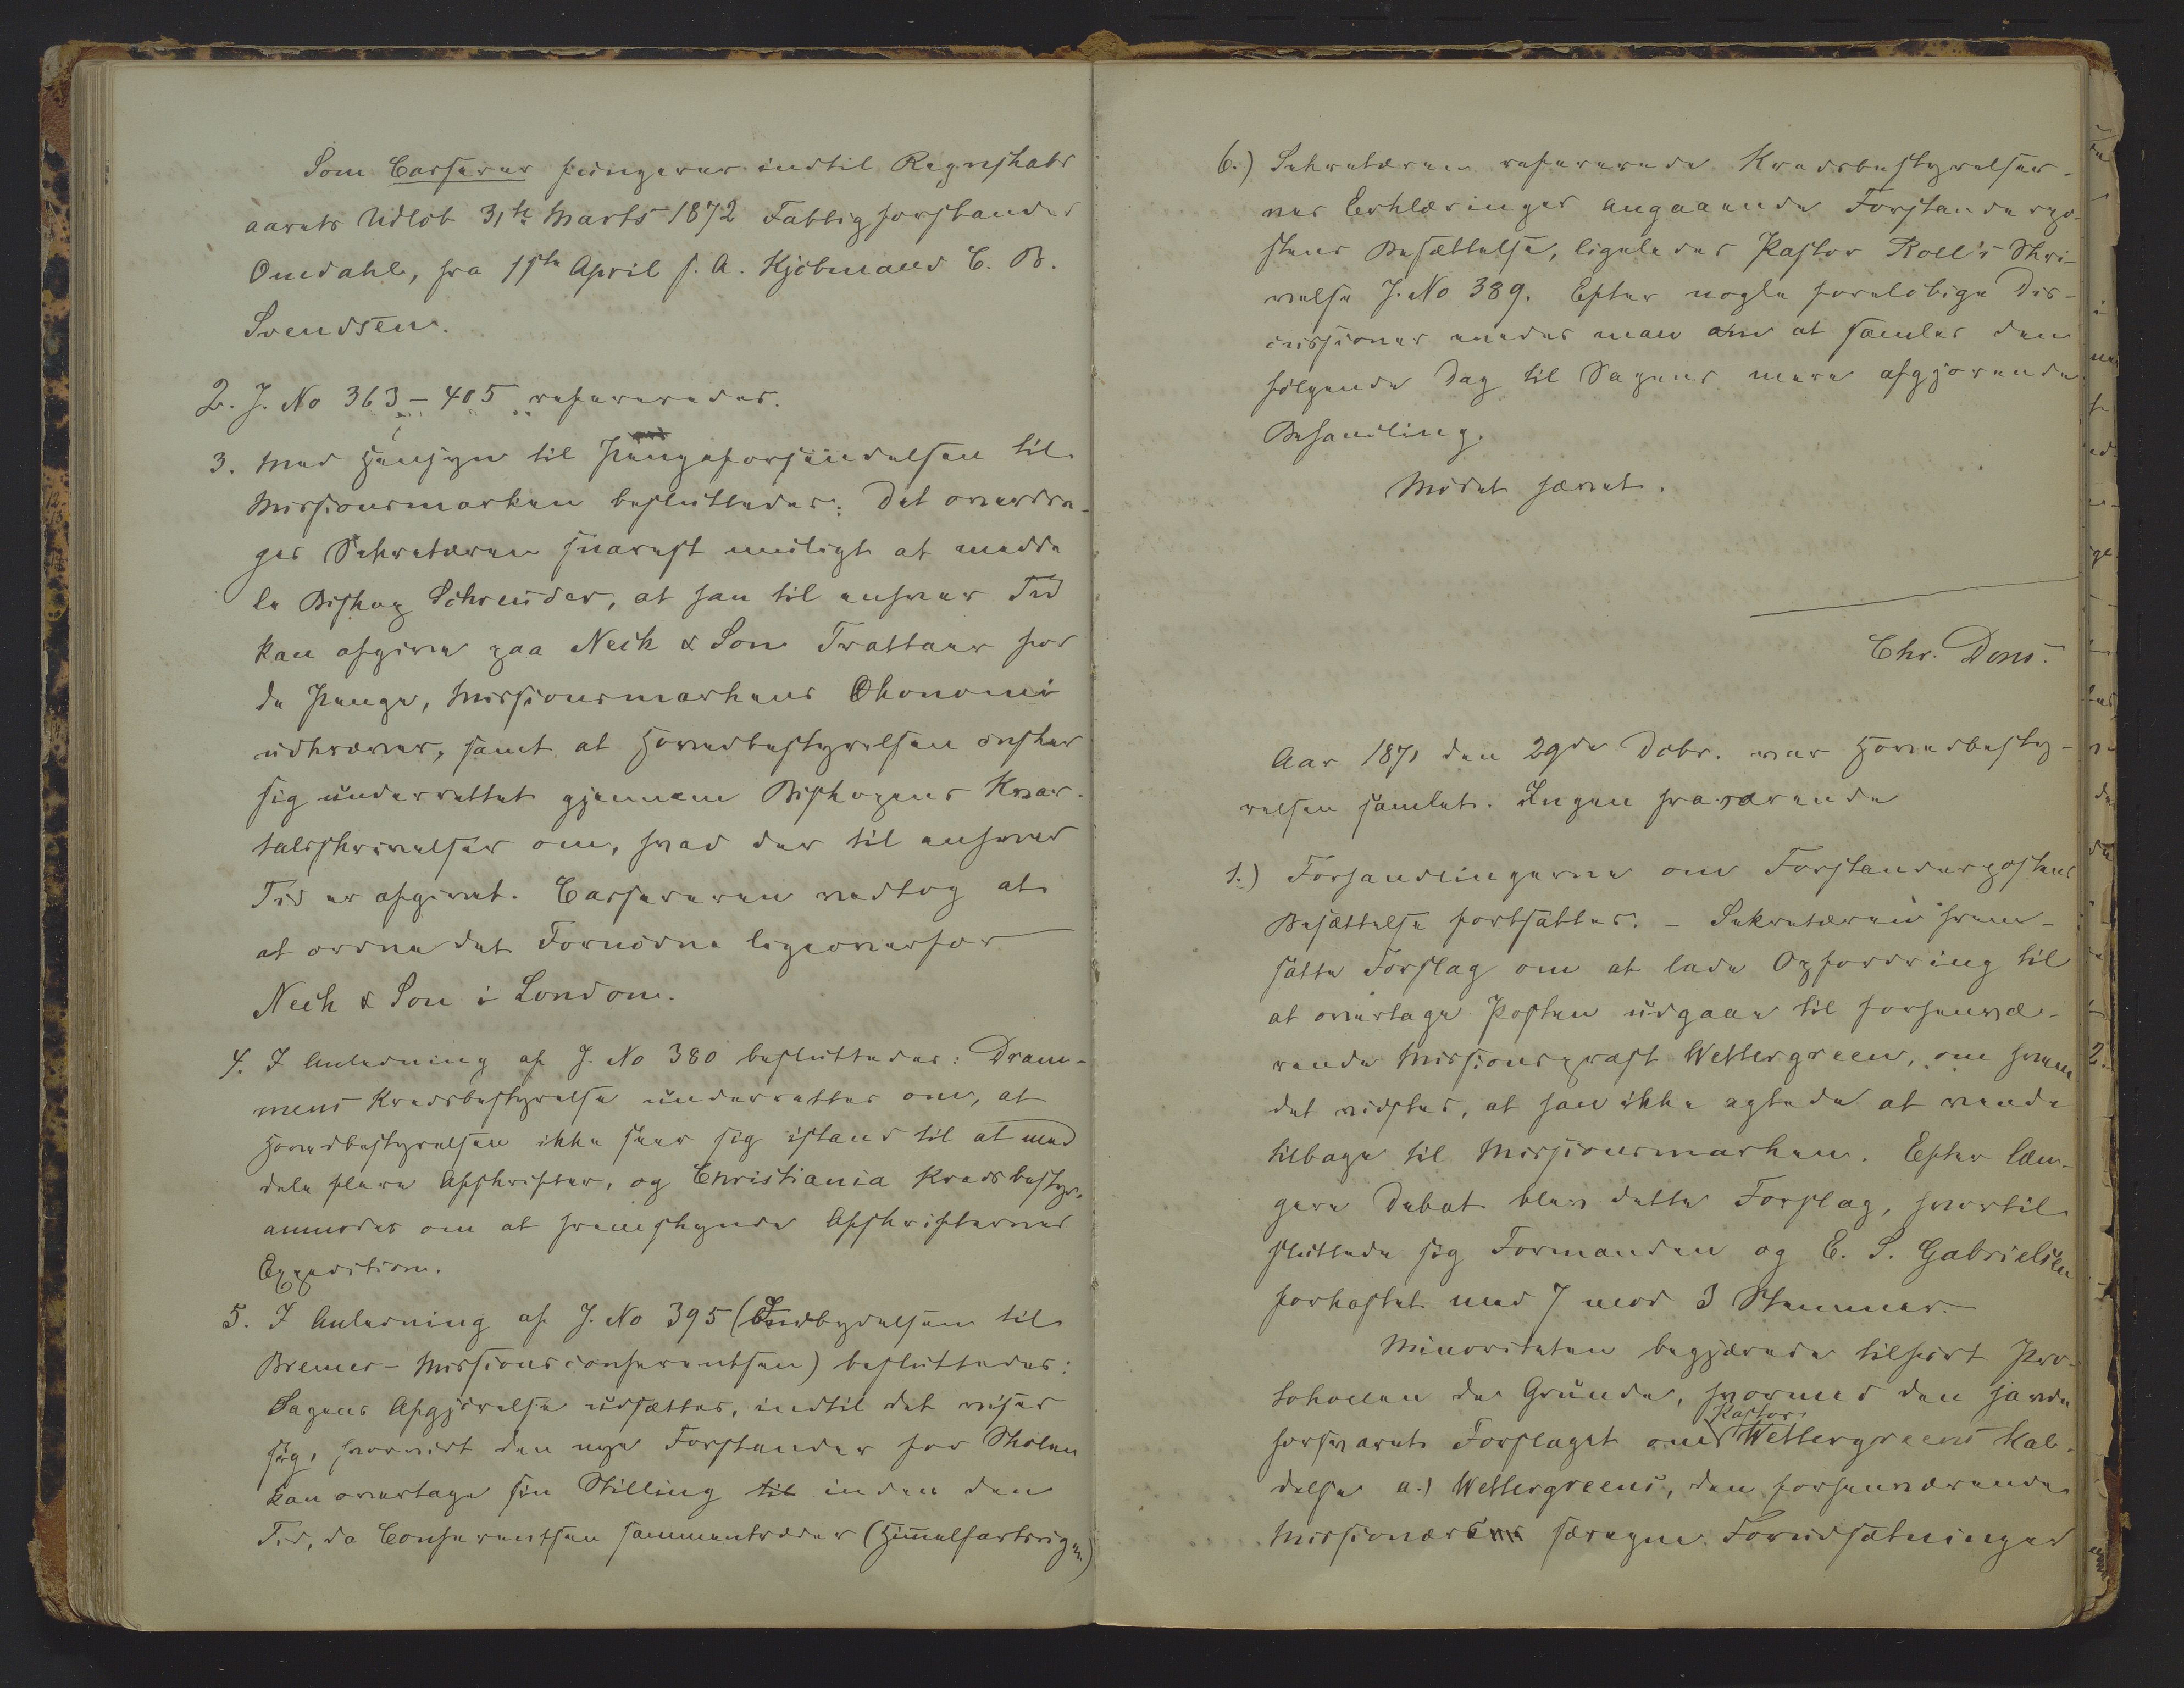 Som Casserer fungerer indtil Regnskabs
aarets Udlöb 31te Marts 1872 Fattigforstander
Omdahl, fra 1ste April s. A. Kjöbmand C. B.
Svendsen.
2. J. No 363–405 refereredes.
3. Med Hensyn til Pengeforsendelsen til
Missionsmarken besluttedes: Det overdra-
ges Sekretæren snarest muligt at medde
le Biskop Schreuder, at han til enhver Tid
kan afgive paa Neck & Son Trattaer for
de Penge, Missionsmarkens Ökonomi
udkræver, samt at Hovedbestyrelsen önsker
sig underrettet gjennem Biskopens Kvar-
talsskrivelser om, hvad der til enhver
Tid er afgivet. Cassereren vedtog at
at ordne det Fornödne ligeoverfor
Neck & Son i London.
4. I Anledning af J. No 380 besluttedes: Dram-
mens Kredsbestyrelse underrettes om, at
Hovedbestyrelsen ikke seer sig istand til at med
dele flere Afskrifter, og Christiania Kredsbestyr.
anmodes om at fremskynde Afskrifternes
Expedition.
5. I Anledning af J. No 395 (Indbydelsen til
Bremer-Missionsconferentsen) besluttedes:
Sagens Afgjörelse udsættes, indtil det viser
sig, hvorvidt den nye Forstander for Skolen
kan overtage sin Stilling til inden den
Tid, da Conferentsen sammentræder (Himmelfartsugen)
6.) Sekretæren refererede Kredsbestyrelser-
nes Erklæringer angaaende Forstanderpo-
stens Besættelse, ligeledes Pastor Roll's Skri-
velse J. No 389. Efter nogle forelöbige Dis-
cussioner enedes man om at samles den
fölgende Dag til Sagens mere afgjörende
Behandling.
Mödet hævet.
Chr. Dons.
Aar 1871 den 29de Dcbr. var Hovedbesty-
relsen samlet. Ingen fraværende
1.) Forhandlingerne om Forstanderpostens
Besættelse fortsattes. – Sekretæren frem-
satte Forslag om at lade Opfordring til
at overtage Posten udgaae til forhenvæ-
rende Missionsprest Wettergreen, om hvem
det vidstes, at han ikke agtede at vende
tilbage til Missionsmarken. Efter læn-
gere Debat blev dette Forslag, hvortil
sluttede sig Formanden og E. S. Gabrielsen
forkastet med 7 mod 3 Stemmer.
Minoriteten begjærede tilfört Pro-
tokollen de Grunde, hvormed den havde
forsvaret Forslaget om Pastor Wettergreens Kal-
delse a.) Wettergreens, den forhenværende
Missionærs særegne Forudsætninger